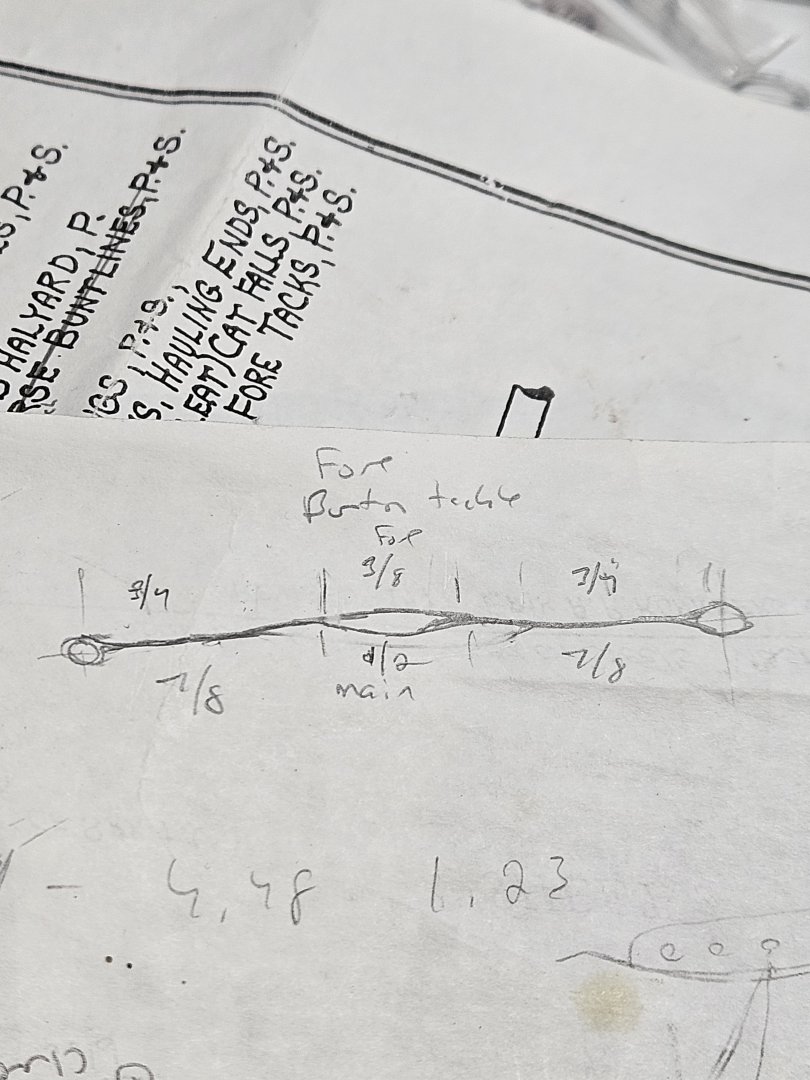 S, P.&S.
HALYARD, P.
RSE BUNTLINES, P.&S.
GS, P.&S.,
S, HAULING ENDS, P.&S.
EAT) CAT FALLS, P.&S.
FORE TACKS, P.&S.
Fore
Bunton tackle
Fore
3/4 3/8 3/4
7/8 1/2 7/8
main
- 4,48 1,23